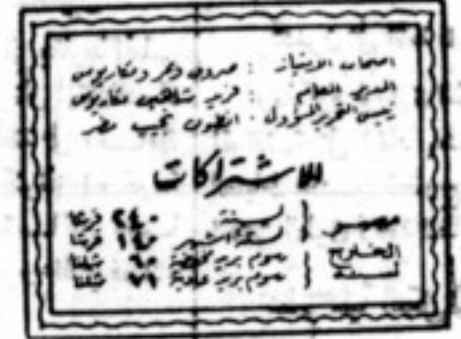 اصحاب الامتياز : صروف ونمر ومكاريوس
المدير العام : فريد شاهين مكاريوس
رئيس التحرير المسؤول : انطون نجيب مطر
للاشتراكات
مصر لسنة ٢٤٠ قرشا
لستة اشهر ١٤٠ قرشا
الخارج لسنة رسوم بريد مخفضة ٦٥ شلنا
رسوم بريد عادية ٧٦ شلنا